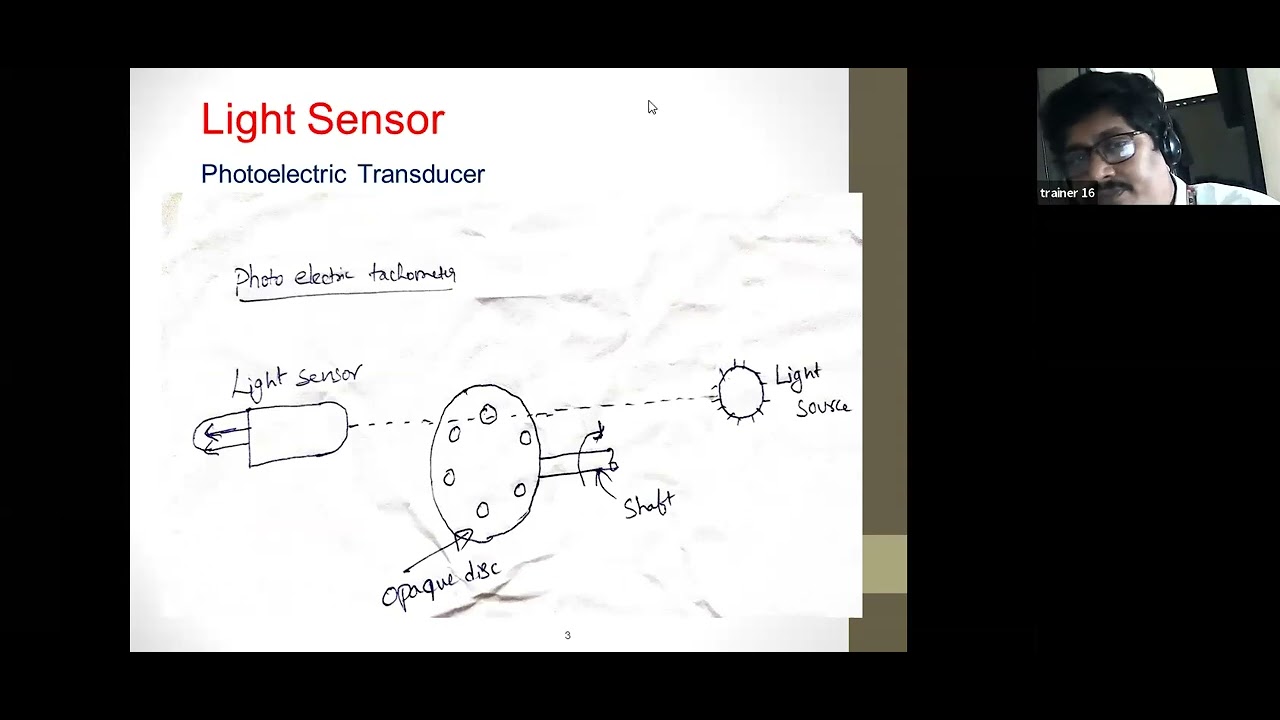 Light Sensor
Photoelectric Transducer
Photo electric tachometer
Light sensor
Light
source
Shaft
opaque disc
3
trainer 16